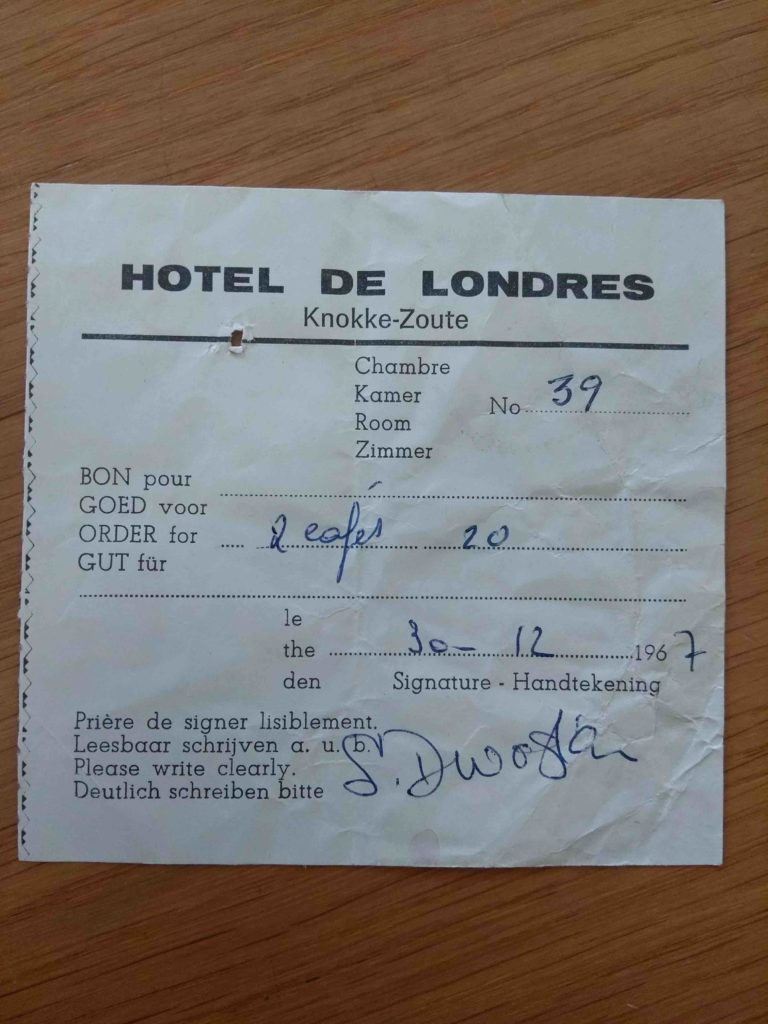 HOTEL DE LONDRES
Knokke-Zoute
Chambre
Kamer
Room
Zimmer
No 39
BON pour
GOED voor
ORDER for 2 cafés 20
GUT für
le
the 30 - 12 1967
den
Signature - Handtekening
Prière de signer lisiblement.
Leesbaar schrijven a. u. b.
Please write clearly.
Deutlich schreiben bitte
S.